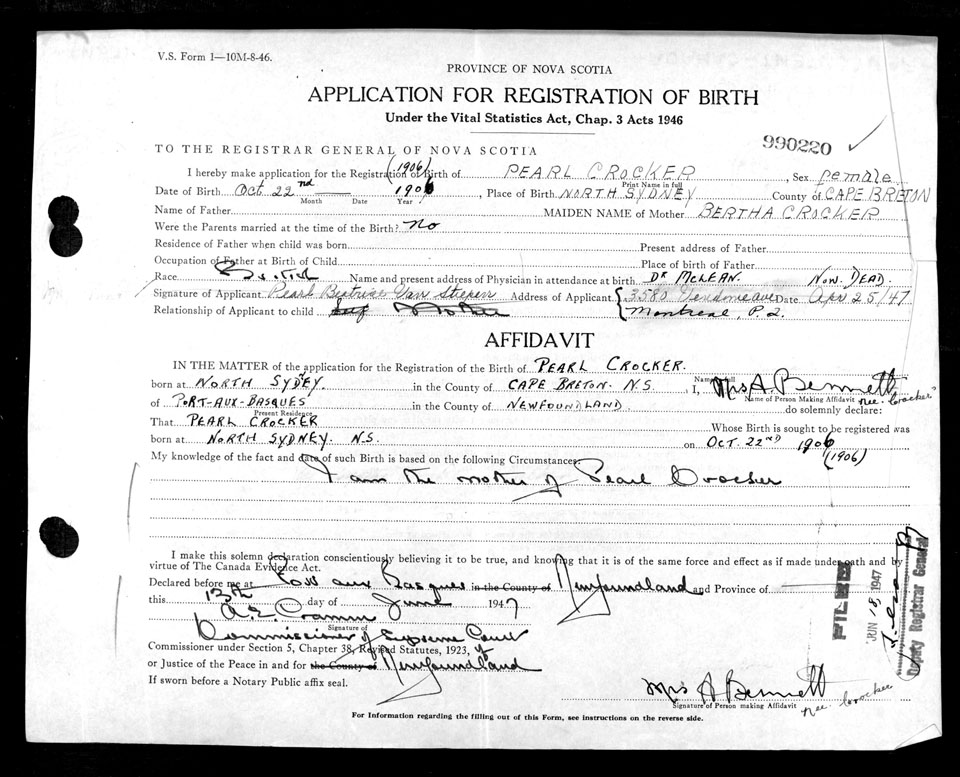 V.S. Form 1—10M-8-46.
PROVINCE OF NOVA SCOTIA
APPLICATION FOR REGISTRATION OF BIRTH
Under the Vital Statistics Act, Chap. 3 Acts 1946
990220
TO THE REGISTRAR GENERAL OF NOVA SCOTIA
(1906)
I hereby make application for the Registration of Birth of PEARL CROCKER, Sex Female
Print Name in full
Date of Birth Oct 22nd 1906, Place of Birth NORTH SYDNEY County of CAPE BRETON
Month Date Year
Name of Father MAIDEN NAME of Mother BERTHA CROCKER
Were the Parents married at the time of the Birth? No
Residence of Father when child was born Present address of Father
Occupation of Father at Birth of Child Place of birth of Father
Race British Name and present address of Physician in attendance at birth DR McLEAN. NOW. DEAD.
Signature of Applicant Pearl Beatrice Van Address of Applicant 3580 Vendome ave Date Apr 25/47
Relationship of Applicant to child Self Mother Montreal, P.Q.
AFFIDAVIT
IN THE MATTER of the application for the Registration of the Birth of PEARL CROCKER.
born at NORTH SYDNEY. in the County of CAPE BRETON. N.S. I, Mrs A. Bennett
Name in full
nee. Crocker"
Name of Person Making Affidavit
of PORT-AUX-BASQUES in the County of NEWFOUNDLAND. do solemnly declare:
Present Residence
That PEARL CROCKER Whose Birth is sought to be registered was
born at NORTH SYDNEY. N.S. on OCT. 22ND 1906
(1906)
My knowledge of the fact and date of such Birth is based on the following Circumstances:
I am the mother of Pearl Crocker
I make this solemn declaration conscientiously believing it to be true, and knowing that it is of the same force and effect as if made under oath and by
virtue of The Canada Evidence Act.
Declared before me at Port aux Basques in the County of Newfoundland and Province of
this 13th day of June 1947
Signature of
Commissioner of Supreme Court
Commissioner under Section 5, Chapter 38, Revised Statutes, 1923, of
or Justice of the Peace in and for the County of Newfoundland
If sworn before a Notary Public affix seal.
Mrs A Bennett
nee. Crocker
Signature of Person making Affidavit
For Information regarding the filling out of this Form, see instructions on the reverse side.
FILED
JUN 18, 1947
Deputy Registrar General